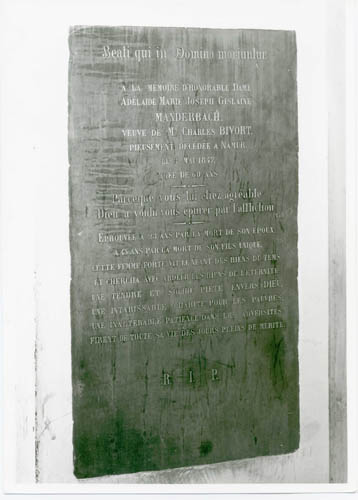 Beati qui in Domino moriuntur
A LA MEMOIRE D'HONORABLE DAME
ADELAIDE MARIE JOSEPH GISLAINE
MANDERBACH,
VEUVE DE Mr CHARLES BIVORT
PIEUSEMENT DECEDÉE A NAMUR
LE MAI 1837,
AGÉE DE 60 ANS
Parceque vous lui étiez agréable
Dieu a voulu vous eprouver par l'affliction
EPROUVÉE A ANS PAR LA MORT DE SON EPOUX
A ANS PAR LA MORT DE SON FILS UNIQUE,
CETTE FEMME FORTE DES BIENS DU TEMS
ET CHERCHA AVEC ARDEUR LES BIENS DE L'ETERNITÉ
UNE TENDRE ET SOLIDE PIETÉ ENVERS DIEU,
UNE INTARISSABLE CHARITÉ POUR LES PAUVRES,
UNE INALTERABLE PATIENCE DANS LES ADVERSITÉS
FIRENT DE TOUTE SA VIE DES JOURS PLEINS DE MERITE.
R. I. P.